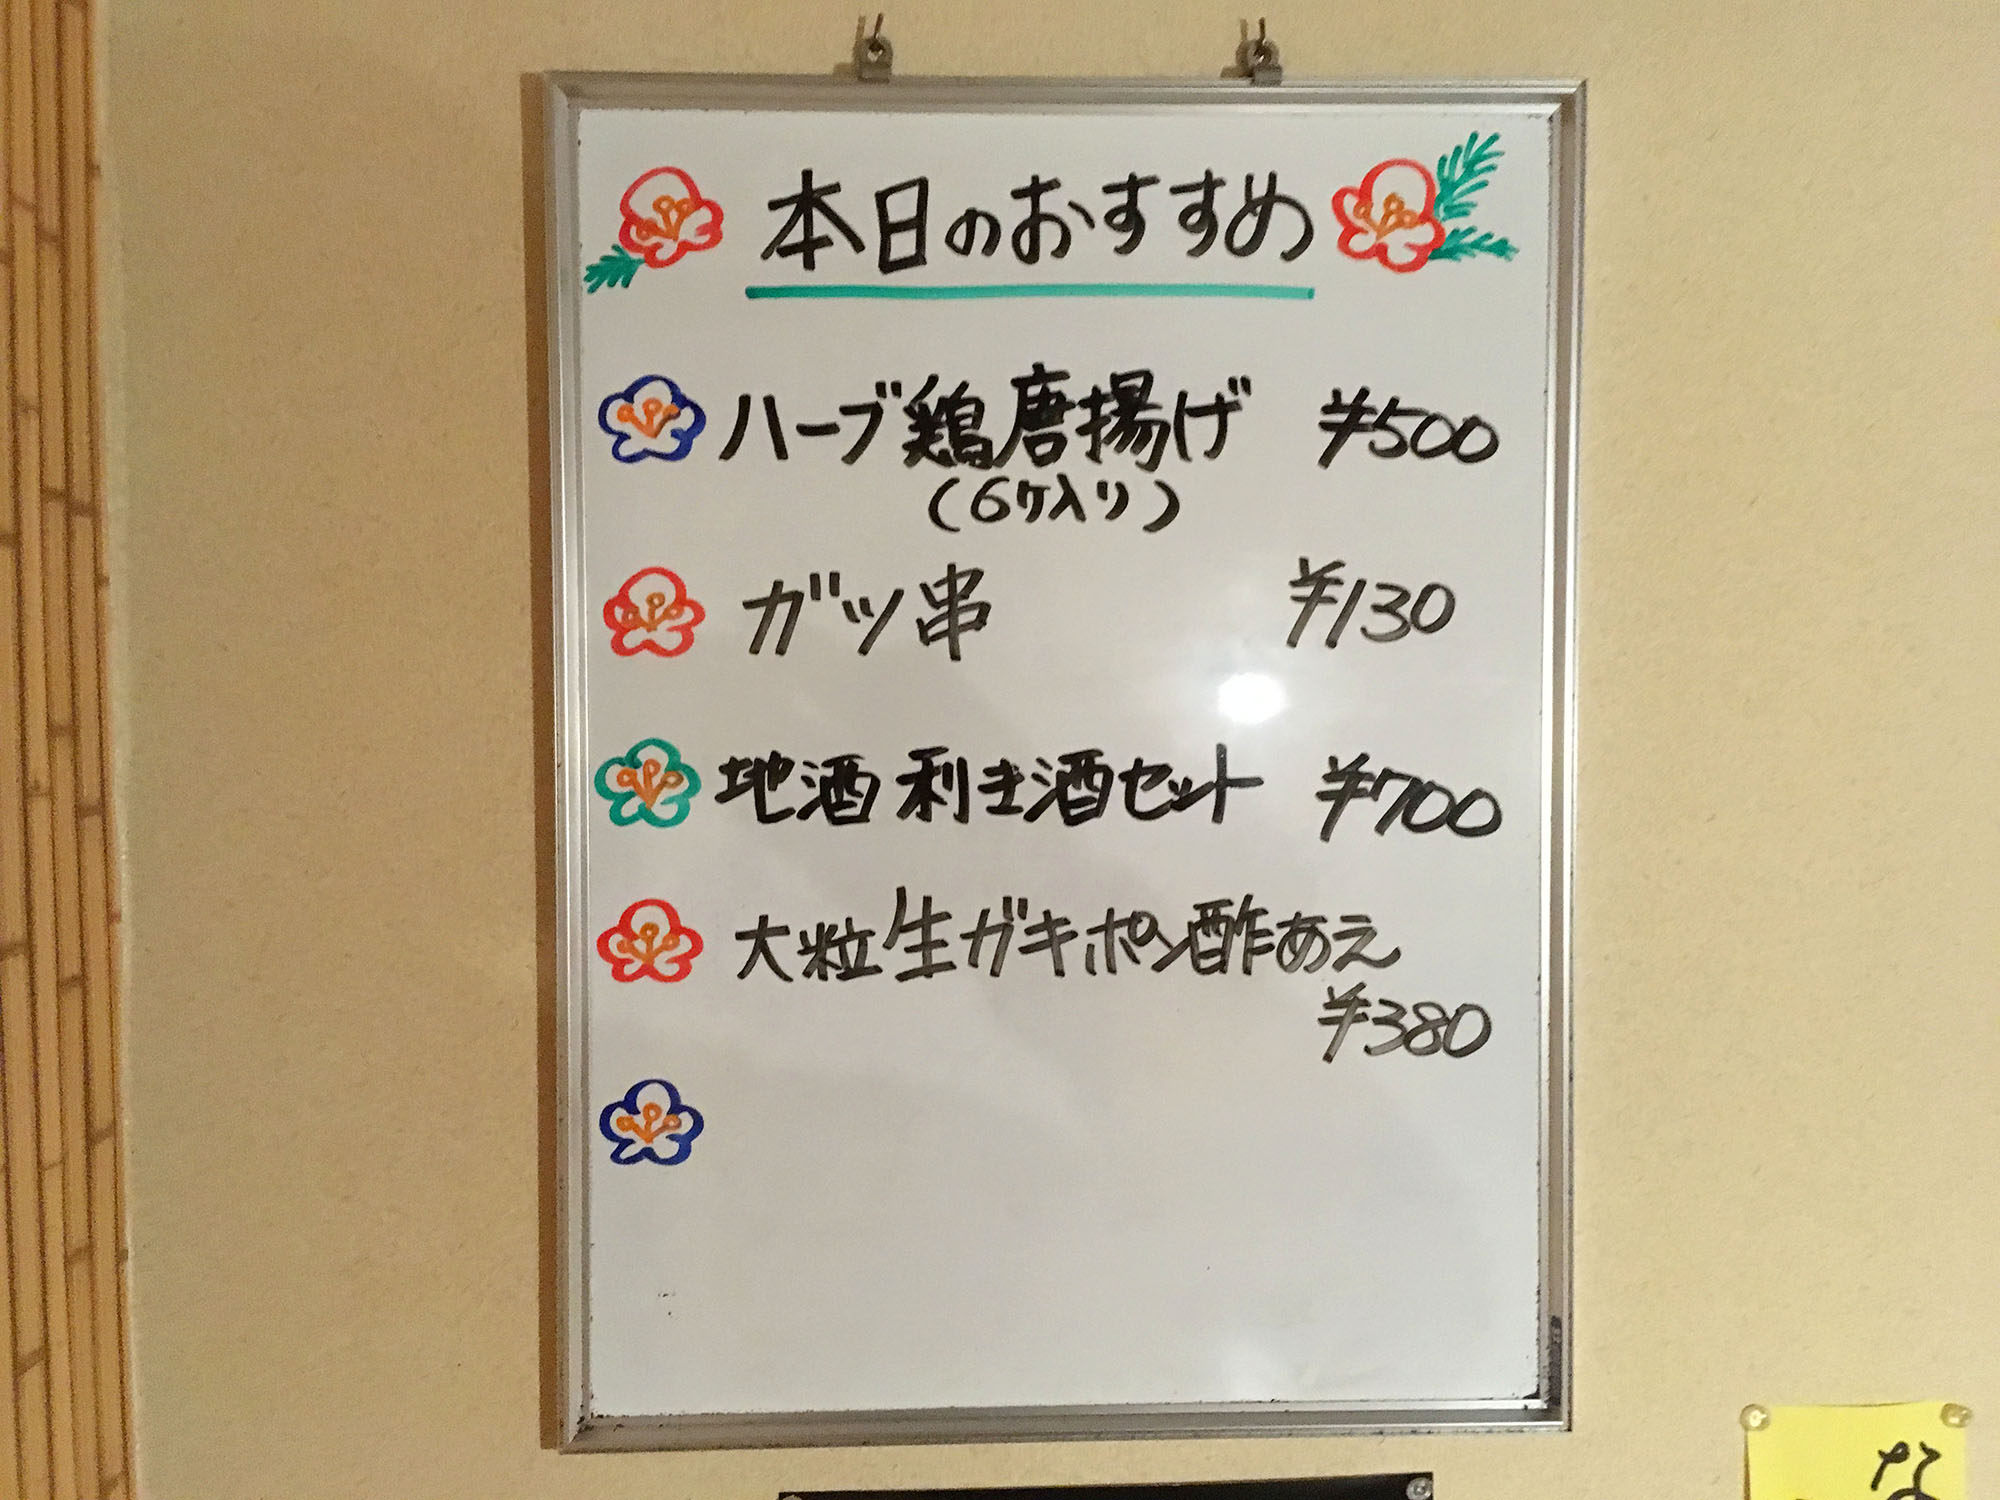 本日のおすすめ
ハーブ鶏唐揚げ ¥500
(6ケ入り)
ガツ串 ¥130
地酒 利き酒セット ¥700
大粒生ガキポン酢あえ
¥380